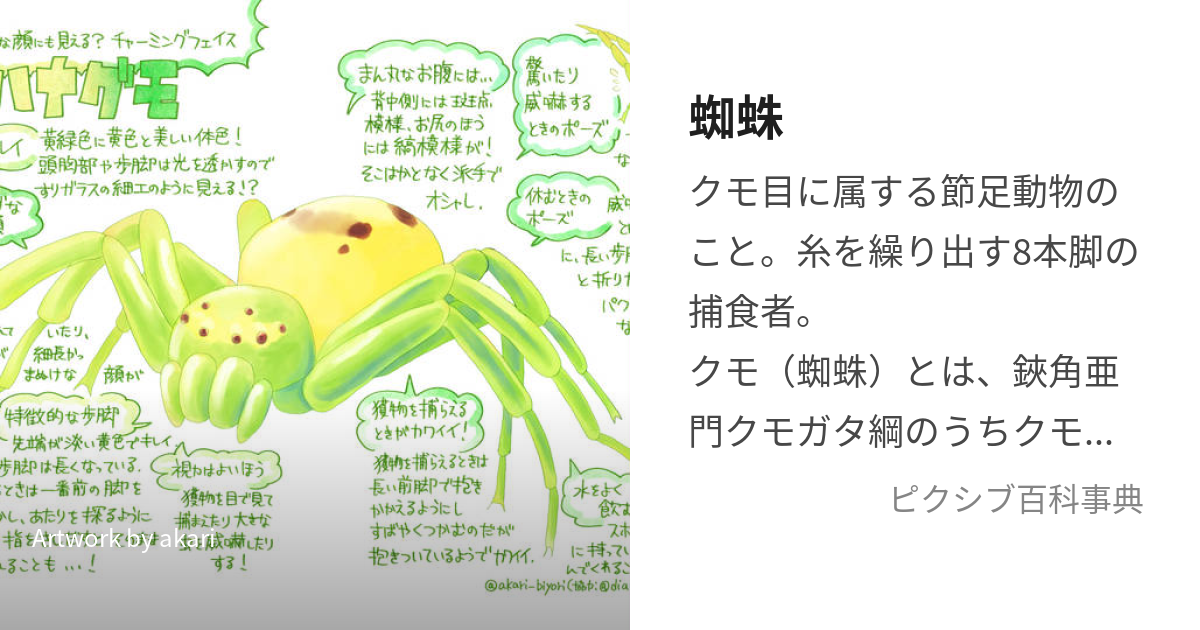 な顔にも見える? チャーミングフェイス
ハナグモ
レイ
黄緑色に黄色と美しい体色!
頭胸部や歩脚は光を透かすので
すりガラスの細工のように見える!?
まん丸なお腹には...
背中側には斑点
模様、お尻のほう
には縞模様が!
そこはかとなく派手で
オシャレ.
驚いたり
威嚇する
ときのポーズ
休むときの
ポーズ
に、長い歩
と折り
パク
いたり、
細長かっ
まぬけな
顔が
特徴的な歩脚
先端が淡い黄色でキレイ
歩脚は長くなっている.
ときは一番前の脚を
かし、あたりを探るように
ることも...!
視力はよいほう
獲物を目で見て
捕まえたり大きな
嚇したり
する!
獲物を捕らえる
ときがカワイイ!
獲物を捕らえるときは
長い前脚で抱き
かかえるようにし
すばやくつかむのだが
抱きついているようでカワイイ.
水をよく
飲む
に持ってい
んでくれるこ
@akari-biyori(協力:@dia
Artwork by akari
蜘蛛
クモ目に属する節足動物の
こと。糸を繰り出す8本脚の
捕食者。
クモ（蜘蛛）とは、鋏角亜
門クモガタ綱のうちクモ...
ピクシブ百科事典